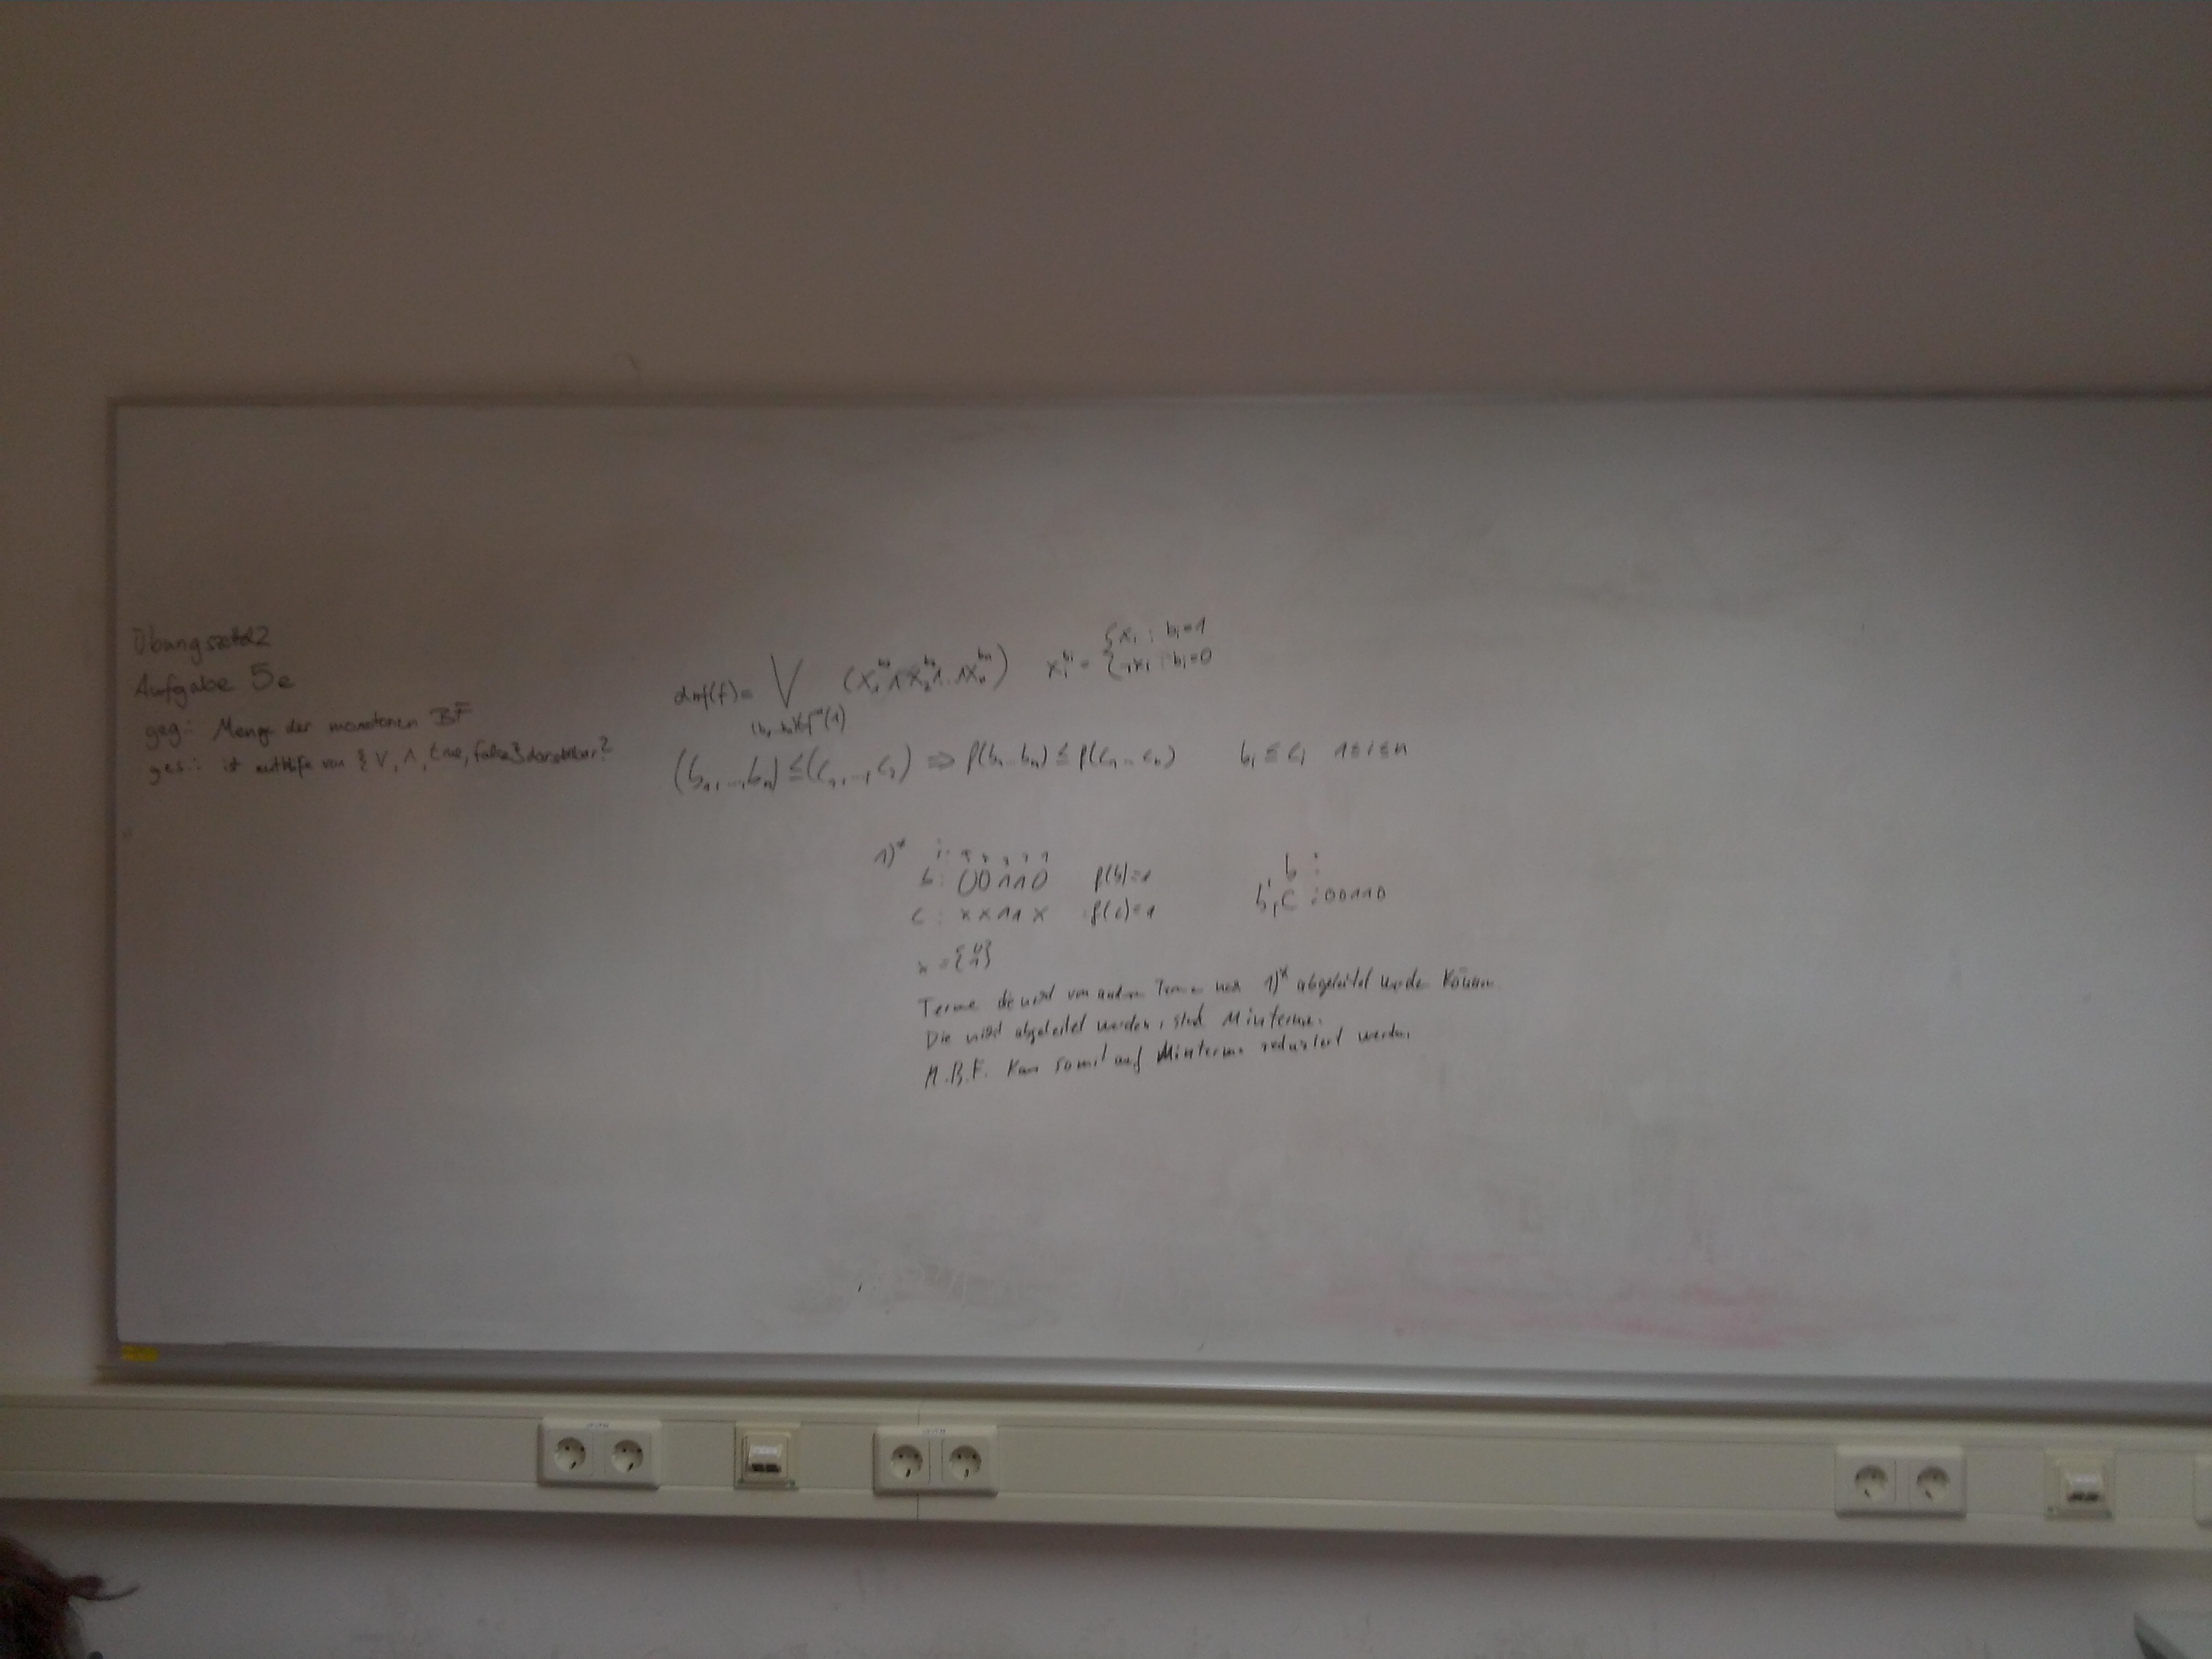 Übungszettel 2
Aufgabe 5e
geg.: Menge der monotonen BF
ges.: ist mithilfe von {∨, ∧, true, false} darstellbar?
dnf(f) = ⋁ (x₁^b₁ ∧ x₂^b₂ ∧ .. ∧ xₙ^bₙ) xᵢ^bᵢ = { xᵢ : bᵢ=1
{ ¬xᵢ : bᵢ=0
(b₁..bₙ)∈f⁻¹(1)
(b₁, ..., bₙ) ≤ (c₁, ..., cₙ) ⇒ f(b₁..bₙ) ≤ f(c₁..cₙ) bᵢ ≤ cᵢ 1≤i≤n
1)*
b: 00110 f(b)=1 b :
c: xx11x f(c)=1 b,c : 00110
x = {0 1}
Terme die nicht von andren Terme nach 1)* abgeleitet werden können.
Die nicht abgeleitet werden, sind Minterme.
M.B.F. kann somit auf Minterme reduziert werden